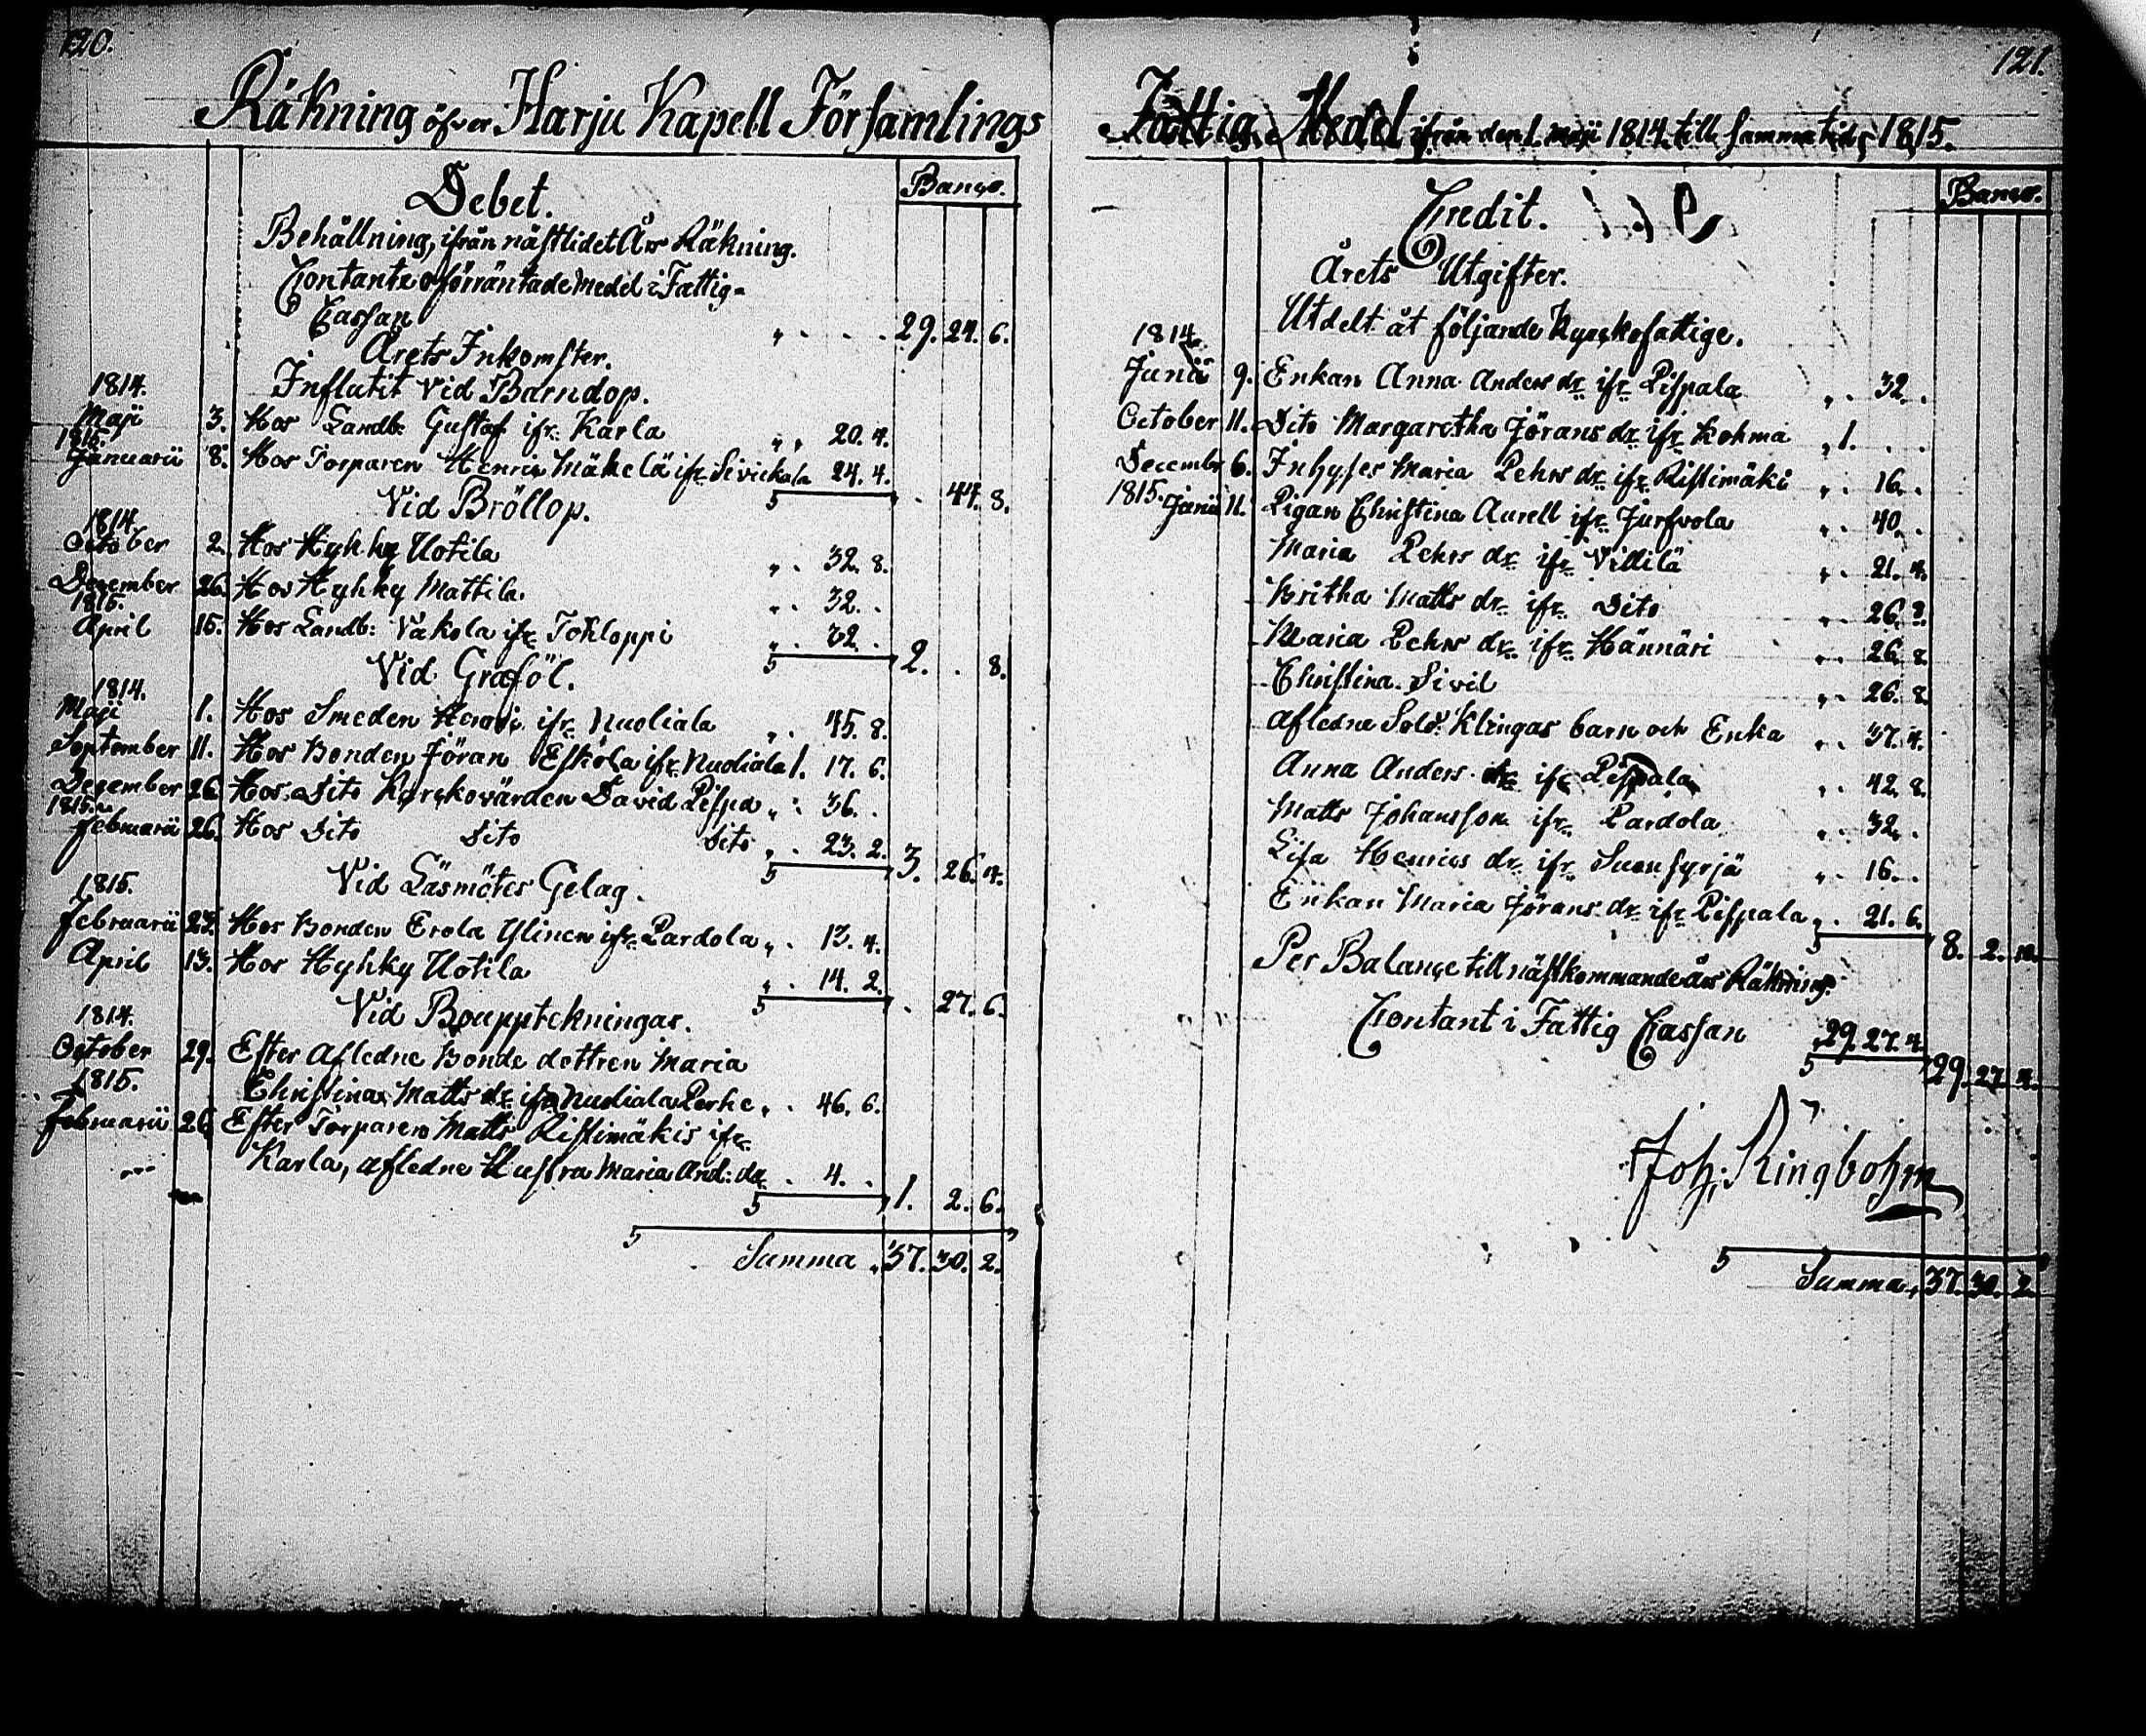 120.
Räkning öfver Harju Kapell Församlings
Debet.
Banco.
Behållning, ifrån nästlidet Års Räkning.
Contante oförräntade medel i Fattig-
Cassan „ . . . 29. 24. 6.
Årets Inkomster.
Influtit Vid Barndop.
1814.
Maji 3. Hos Landb. Gustaf ifr. Karla „ „ 20. 4.
1815.
Januarii 8. Hos Torparen Henric Mäkelä ifr. Sivickala 24. 4.
. 44. 8.
Vid Bröllop.
1814.
October 2. Hos Hyhky Uotila „ . 32. 8.
December 26. Hos Hyhky Mattila. „ . 32. .
1815.
April 15. Hos Landb: Vakola ifr. Tohloppi „ . 32. .
2. . 8.
Vid Graföl.
1814.
Maji 1. Hos Smeden Henric ifr. Nuoliala „ . 45. 8.
September 11. Hos Bonden Jöran Eskola ifr. Nuoliala 1. 17. 6.
December 26. Hos Dito Kyrckovärden David Pispa „ . 36. .
1815.
Februarii 26. Hos Dito Dito Dito „ . 23. 2.
3. 26. 4.
Vid Läsmötes Gelag.
1815.
Februarii 23. Hos Bonden Erola Ylinen ifr. Pardola „ . 13. 4.
April 13. Hos Hyhky Uotila „ . 14. 2.
. 27. 6.
Vid Bouppteckningar.
1814.
October 29. Efter Afledne Bonde dottren Maria
1815.
Christina Matts dr. ifr. Nuoliala Perhe „ . 46. 6.
Februarii 26. Efter Torparen Matts Ristimäkis ifr.
Karla, afledne Hustra Maria And: dr. . 4. .
1. 2. 6.
Summa „ 37. 30. 2.
121.
Fattig Medel ifrån den 1. maji 1814. till samma tid 1815.
Credit.
Banco.
Årets Utgifter.
Utdelt åt följande Kyrckofattige.
1814.
Junii 9. Enkan Anna Anders dr. ifr. Pispala „ . 32. .
October 11. Dito Margaretha Jörans dr. ifr. Kohma „ 1. . .
December 6. Inhyses Maria Pehrs dr. ifr. Ristimäki „ . 16. .
1815. Junii 11. Pigan Christina Aurell ifr. Jurfvola „ . 40. .
Maria Pehrs dr. ifr. Villilä „ . 21. 4.
Britha Matts dr. ifr. Dito „ . 26. 8.
Maria Pehrs dr. ifr. Hännäri „ . 26. 8.
Christina Sivil „ . 26. 8.
Afledne Sold. Klingas barn och Enka „ . 37. 4.
Anna Anders dr. ifr. Pispala „ . 42. 8.
Matts Johansson ifr. Pardola „ . 32. .
Lisa Henrics dr. ifr. Suonsyrjä „ . 16. .
Enkan Maria Jörans dr. ifr. Pispala „ . 21. 6.
8. 2. 10.
Per Balance till nästkommande års Räkning.
Contant i Fattig Cassan 29. 27. 4.
29. 27. 4.
Joh: Ringbohm
Summa „ 37. 30. 2.